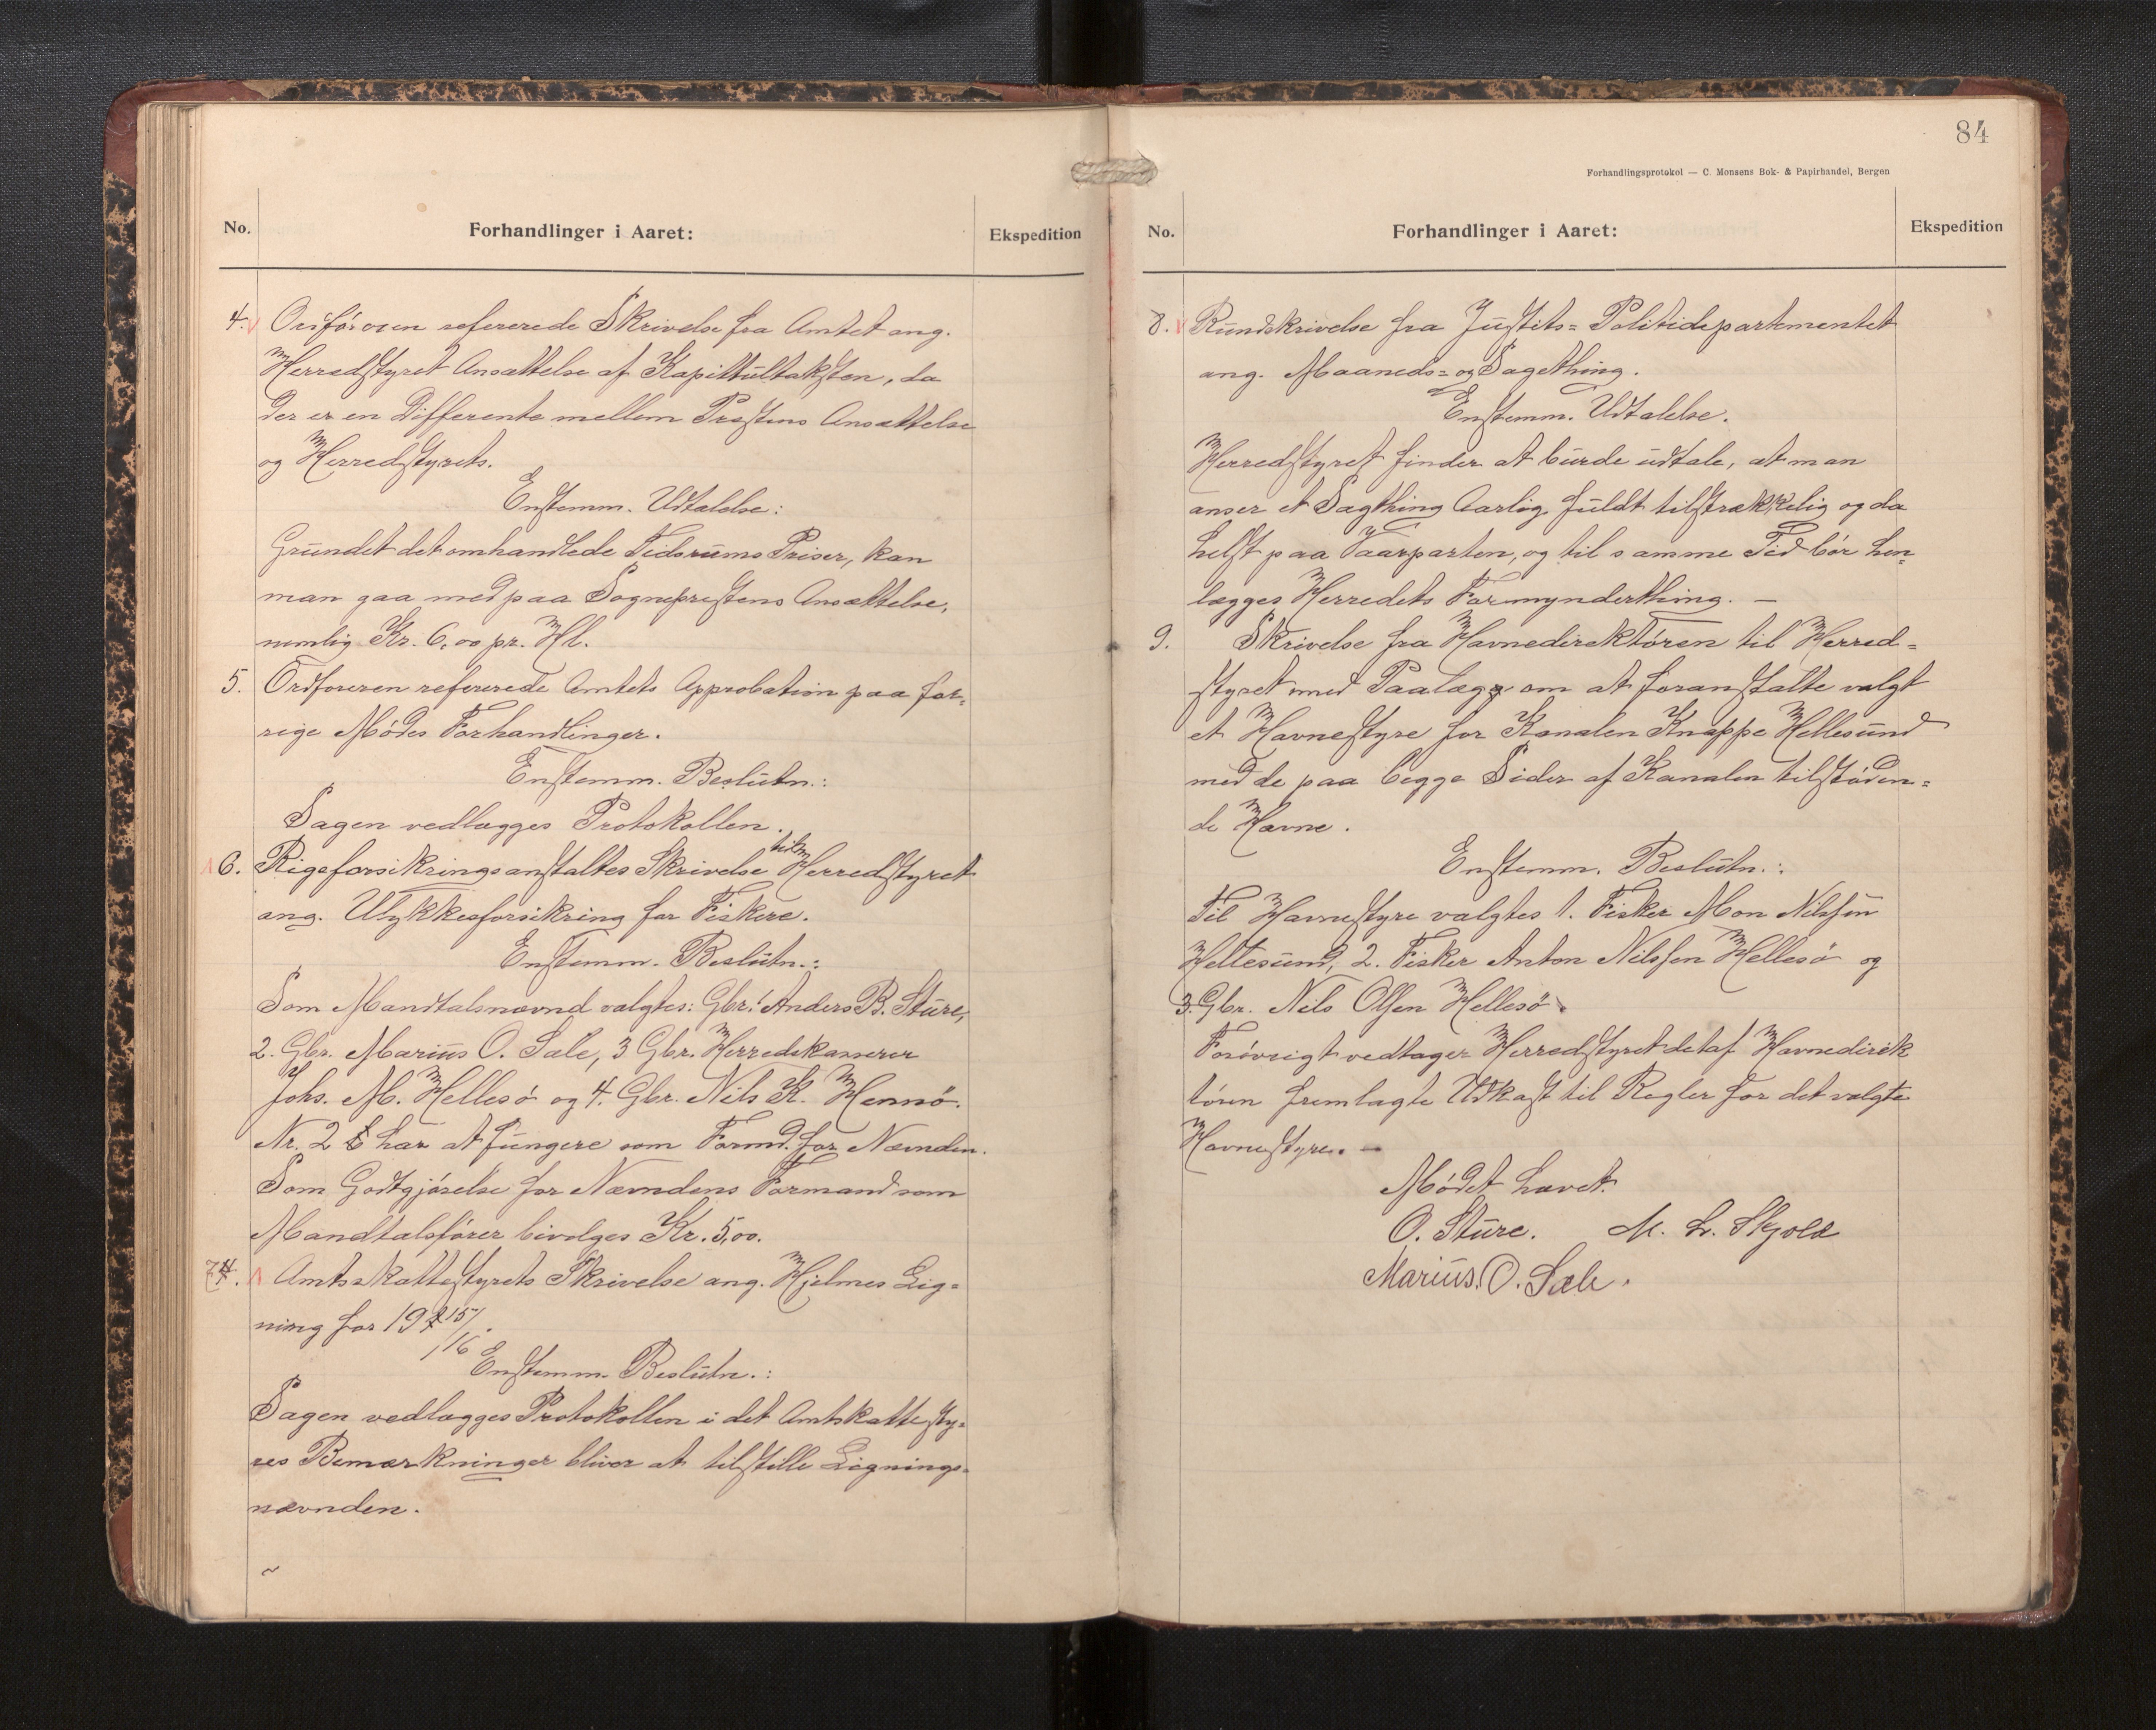 No.
Forhandlinger i Aaret:
Ekspedition
4. Ordføreren refererede Skrivelse fra Amtet ang.
Herredstyret Ansættelse af Kapitültaksten, da
der er en Differente mellem Prestens Ansættelse
og Herredstyrets.
Enstemm. Udtalelse:
Grundet det omhandlede Tidsrums Priser, kan
man gaa med paa Sogneprestens Ansættelse,
nemlig Kr. 6,00 pr. Hl.
5. Ordføreren refererede Amtets Approbation paa for-
rige Mødes Forhandlinger.
Enstemm. Beslutn.:
Sagen vedlægges Protokollen.
6. Rigsforsikringsanstaltes Skrivelse til Herredstyret
ang. Ulykkesforsikring for Fiskere.
Enstemm. Beslutn.:
Som Mandtalsnævnd valgtes: Gbr. Anders B. Sture,
2. Gbr. Marius O. Sale, 3 Gbr. Herredskasserer
Johs. M. Hellesø og 4. Gbr. Nils K. Hernø.
Nr. 2 har at fungere som Formd. for Nævnden.
Som Godtgjørelse for Nævndens Formand som
Mandtalsfører bevolges Kr. 5,00.
7. Amtsskattestyrets Skrivelse ang. Hjelmes Lig-
ning for 1915/16.
Enstemm. Beslutn.:
Sagen vedlægges Protokollen i det Amtskattesty-
res Bemærkninger bliver at tilstille Lignings-
nævnden.
84
Forhandlingsprotokol — C. Monsens Bok- & Papirhandel, Bergen
No.
Forhandlinger i Aaret:
Ekspedition
8. Rundskrivelse fra Justits= Politidepartementet
ang. Maaneds= og Sagething.
Enstemm. Udtalelse.
Herredstyret finder at burde udtale, at man
anser et Sagthing Aarlig fuldt tilstrækkelig og da
helst paa Vaarparten, og til samme Tid bør hen-
lægges Herredets Formynderthing. —
9. Skrivelse fra Havnedirektøren til Herred=
styret med Paalæg om at foranstalte valgt
et Havnestyre for Kanalen Knappe Hellesund
med de paa begge Sider af Kanalen tilstøden=
de Havne.
Enstemm. Beslutn.:
Til Havnestyre valgtes 1. Fisker Mon Nilssen
Hellesund, 2. Fisker Anton Nilssen Hellesø og
3. Gbr. Nils Olsen Hellesø.
Forøvrigt vedtager Herredstyret det af Havnedirek
tøren fremlagte Udkast til Regler for det valgte
Havnestyre. —
Mødet hævet.
O. Sture. M. L. Skjold
Marius. O. Sale.